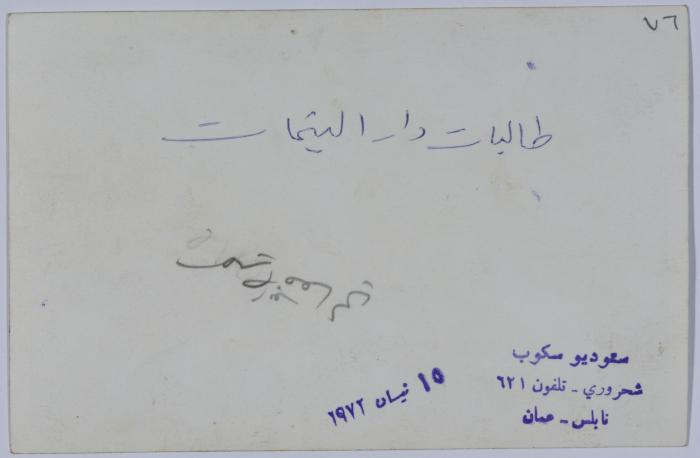 ٧٦
طالبات دار اليتيمات
سعوديو سكوب
شحروري - تلفون ٦٢١
نابلس - عمان
١٥ نيسان ١٩٧٢